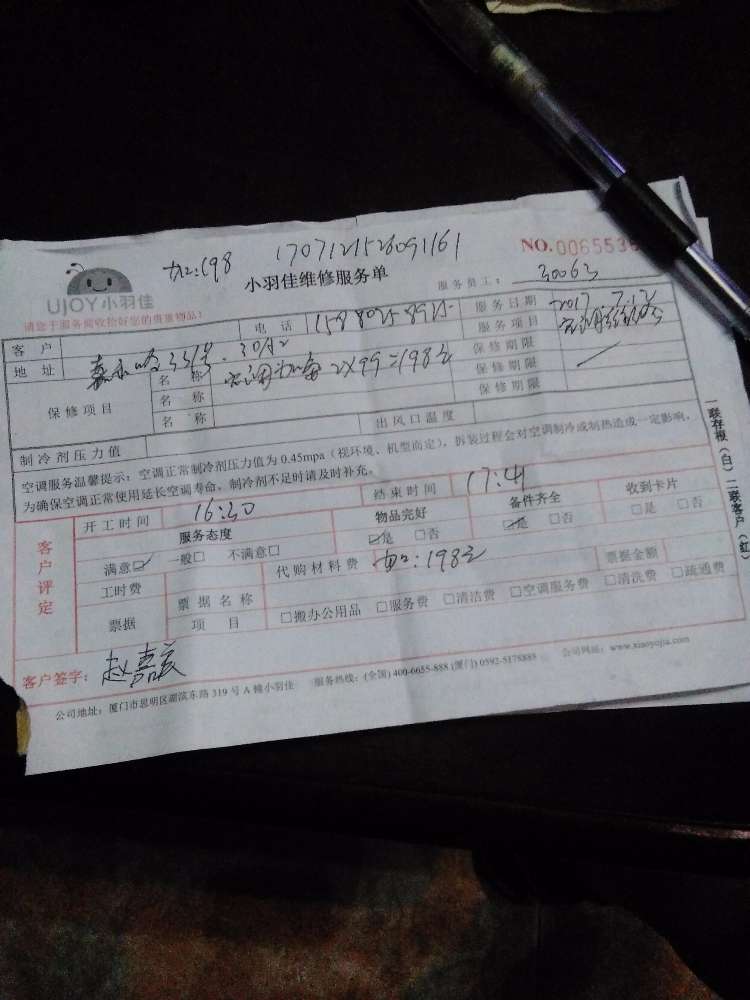 170712152609161
NO.006553
UJOY小羽佳
小羽佳维修服务单
服务员工: 30063
请您于服务前收拾好您的贵重物品!
客户
电话
服务日期 2017.7.12
地址
服务项目
保修项目
名称
2X99=198元
保修期限
名称
保修期限
名称
保修期限
制冷剂压力值
出风口温度
空调服务温馨提示: 空调正常制冷剂压力值为 0.45mpa (视环境、机型而定), 拆装过程会对空调制冷或制热造成一定影响,
为确保空调正常使用延长空调寿命, 制冷剂不足时请及时补充。
客户评定
开工时间 16:30
结束时间 17:41
服务态度
物品完好
备件齐全
收到卡片
满意☑ 一般□ 不满意□
☑是 □否
☑是 □否
□是 □否
工时费
代购材料费
198元
票据金额
票据
票据名称
项目
□搬办公用品 □服务费 □清洁费 □空调服务费 □清洗费 □疏通费
客户签字:
公司地址: 厦门市思明区湖滨东路 319 号 A 幢小羽佳
服务热线: (全国) 400-6655-888 (厦门) 0592-5178885
公司网站: www.xiaoyujia.com
一联存根(白) 二联客户(红)